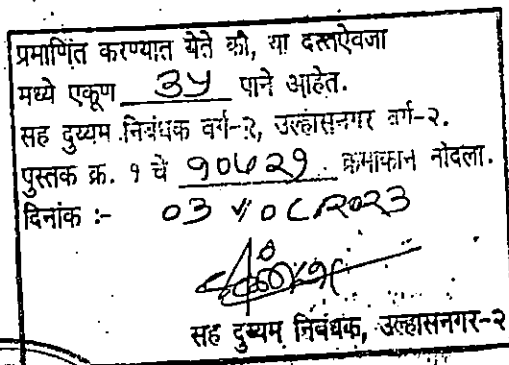 प्रमाणित करण्यात येते की, या दस्तऐवजा
मध्ये एकूण ३५ पाने आहेत.
सह दुय्यम निबंधक वर्ग-२, उल्हासनगर वर्ग-२.
पुस्तक क्र. १ चे १०५२१ क्रमांकान नोंदला.
दिनांक :- ०३ / ०८ / २०२३
सह दुय्यम निबंधक, उल्हासनगर-२